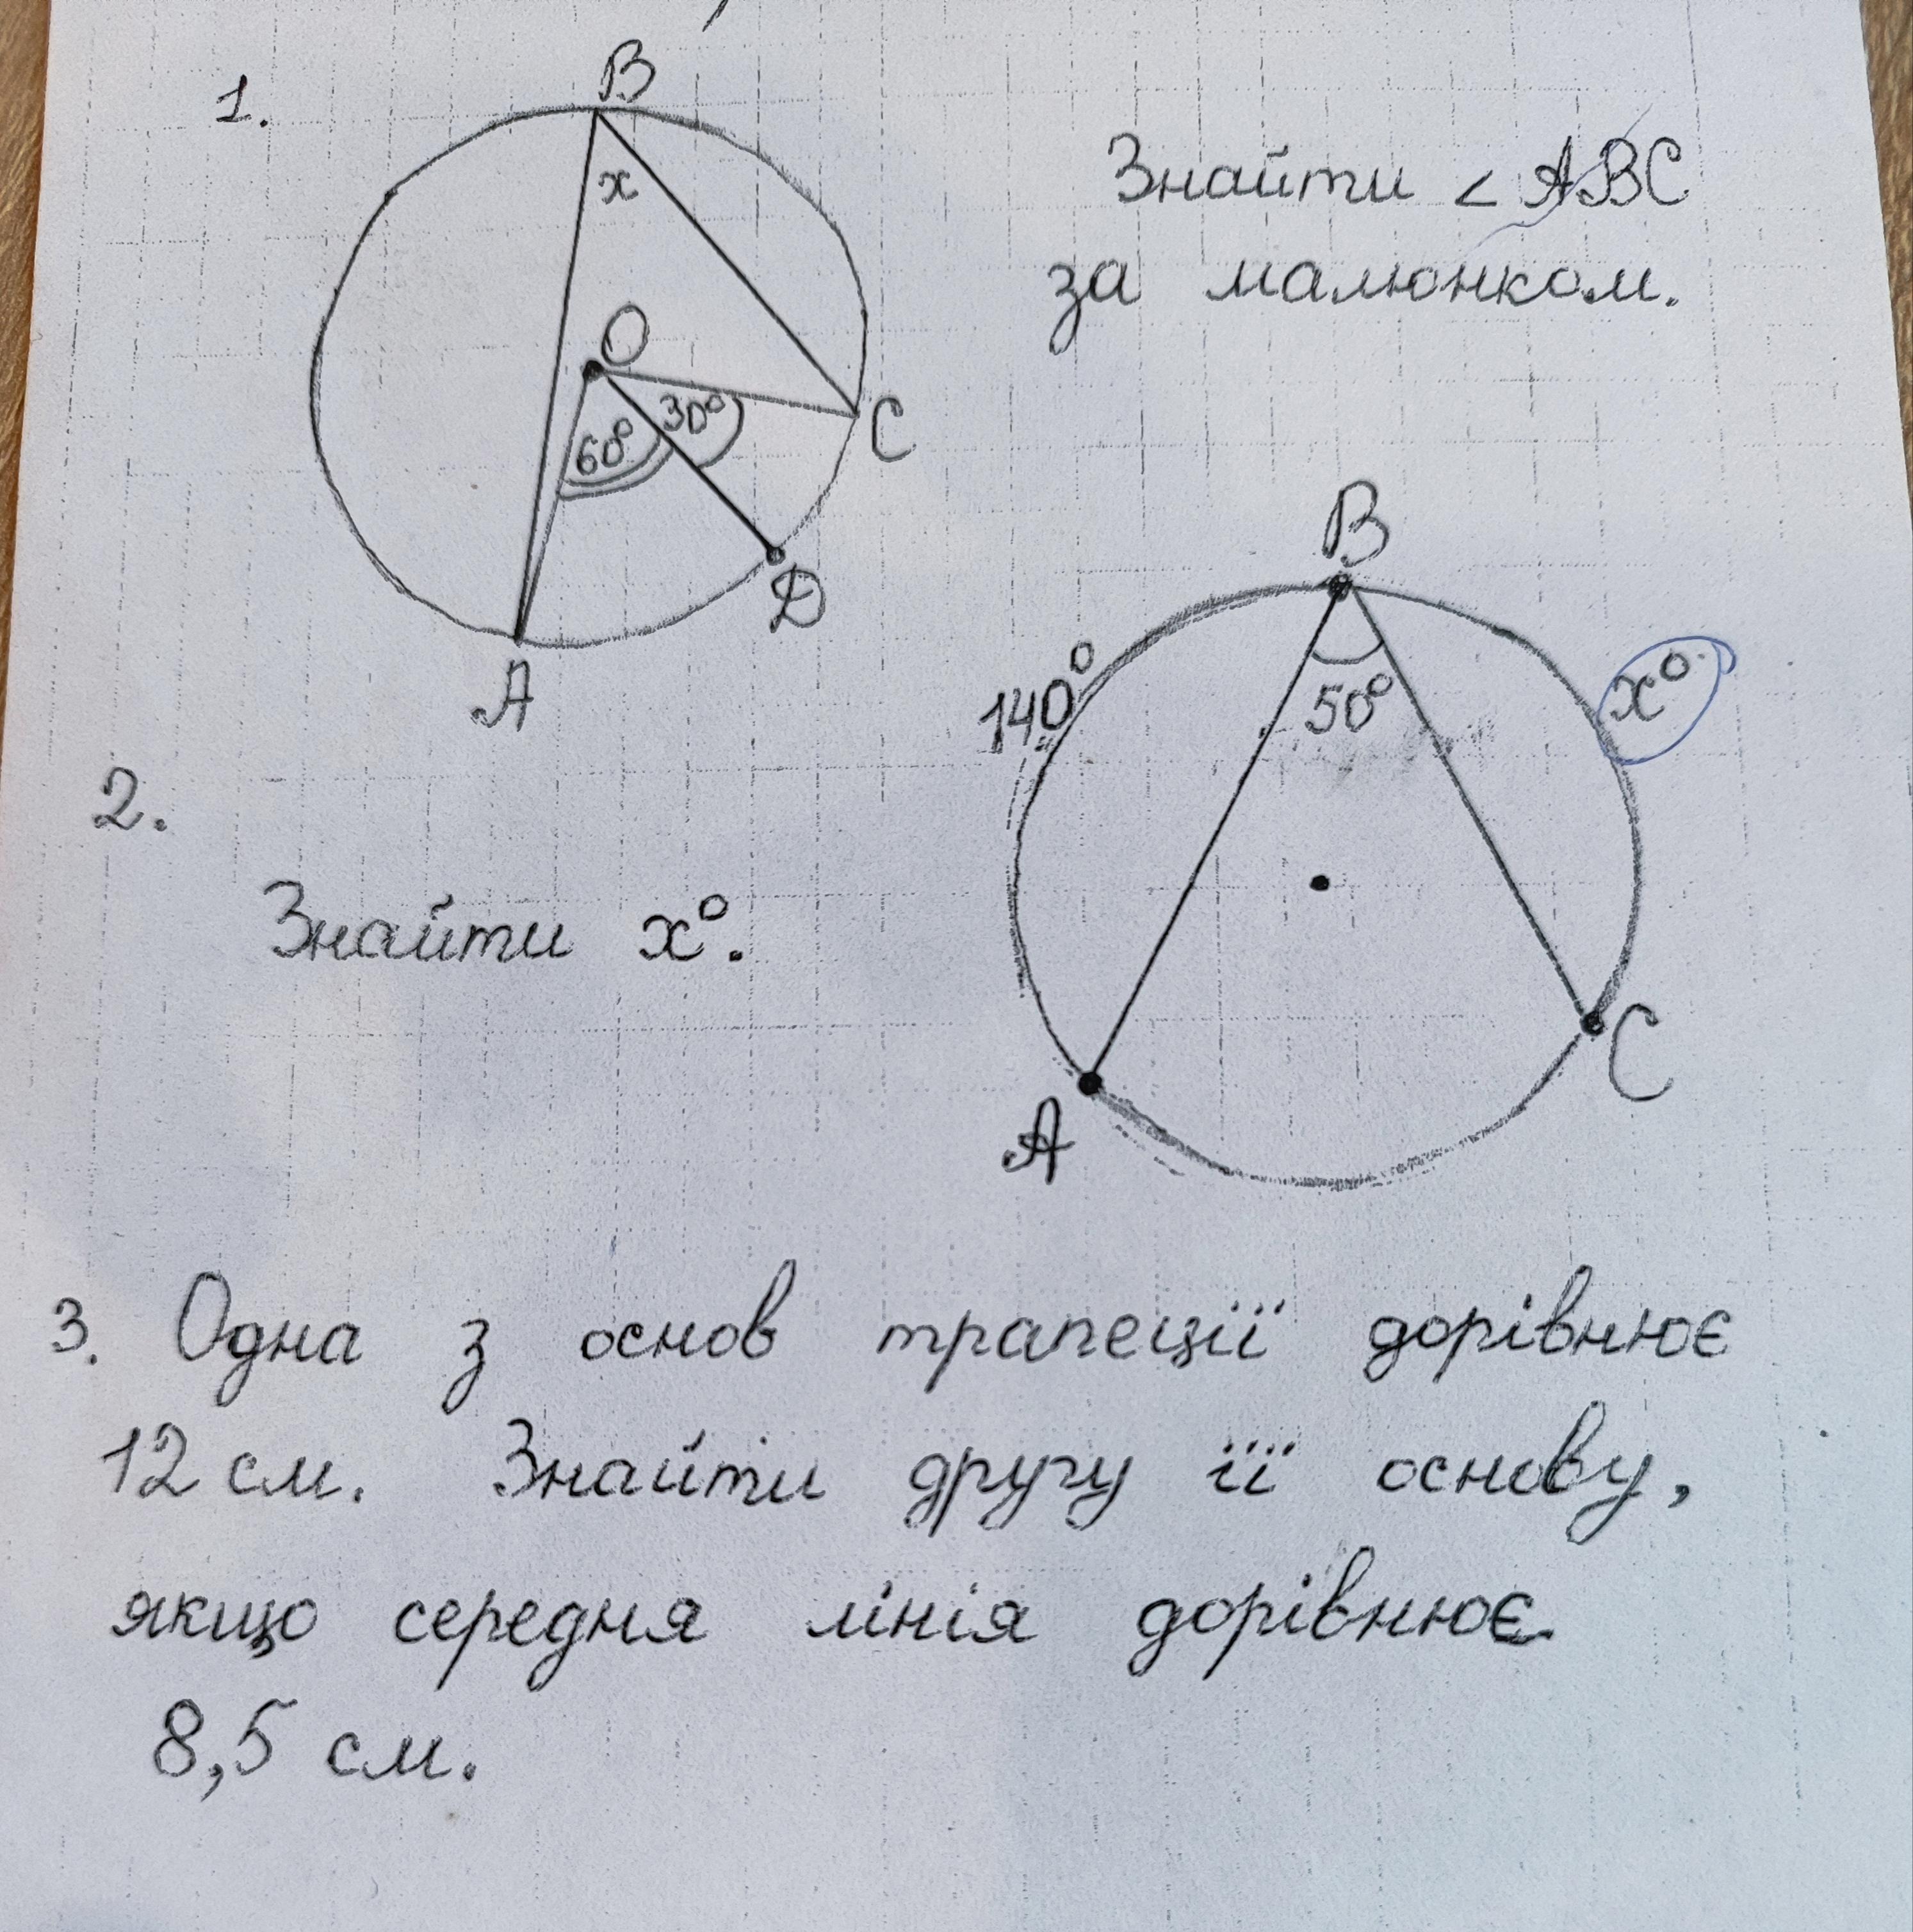 1.
B
x
Знайти < ABC
за малюнком.
O
60° 30°
C
D
A
B
140°
50°
x°
2.
Знайти x°.
A
C
3. Одна з основ трапеції дорівнює
12 см. Знайти другу її основу,
якщо середня лінія дорівнює
8,5 см.